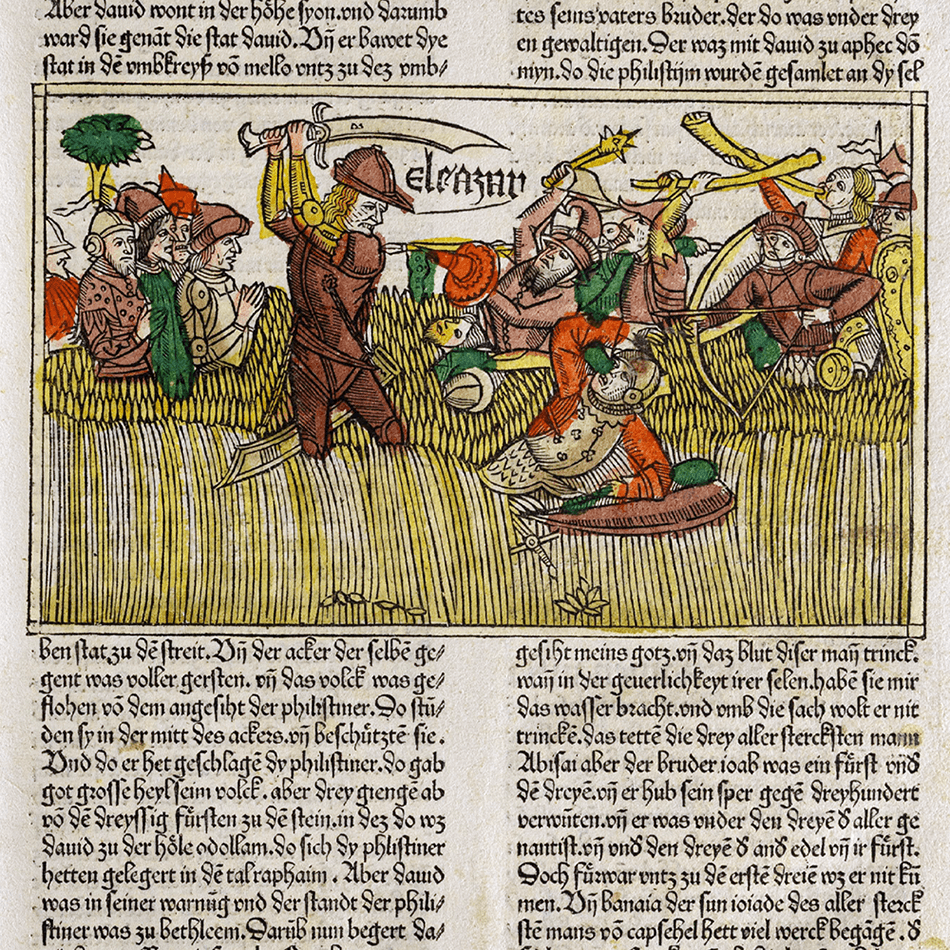 Aber dauid wont in der höhe syon.vnd darumb
ward sie genāt die stat dauid. Vn̄ er bawet dye
stat in dē vmbkreyß vō mello vntz zu dez vmb/
tes seins vaters bruder.der do was vnder drey
en gewaltigen. Der waz mit dauid zu aphec dō
myn.do die philistijm wurdē gesamlet an dy sel
eleazar
ben stat zu dē streit. Vn̄ der acker der selbē ge/
gent was voller gersten. vn̄ das volck was ge/
flohen vō dem angesiht der philistiner. Do stū/
den sy in der mitt des ackers.vn̄ beschütztē sie.
Vnd do er het geschlagē dy philistiner.do gab
got grosse heyl seim volck. aber drey giengē ab
vō dē dreyssig fürsten zu dē stein.in dez do wz
dauid zu der höle odollam.do sich dy phlistiner
hetten gelegert in dē tal raphaim. Aber dauid
was in seiner warnūg vnd der standt der phili/
stiner was zu bethleem. Darūb nun begert da/
gesiht meins gotz.vn̄ daz blut diser man̄ trinck.
wan̄ in der geuerlichkeyt irer selen.habē sie mir
das wasser bracht.vnd vmb die sach wolt er nit
trinckē.das tettē die drey aller stercksten mann
Abisai aber der bruder ioab was ein fürst vnd̄
dē dreyē.vn̄ er hub sein sper gegē dreyhundert
verwūten.vn̄ er was vnder den dreyē d̄ aller ge
nantist.vn̄ vnd̄ den dreyē d̄ and̄ edel vn̄ ir fürst.
Doch fürwar vntz zu dē erstē dreiē wz er nit kū
men. Vn̄ banaia der sun ioiade des aller sterck
stē mans vō capsehel hett viel werck begāgē. d̄